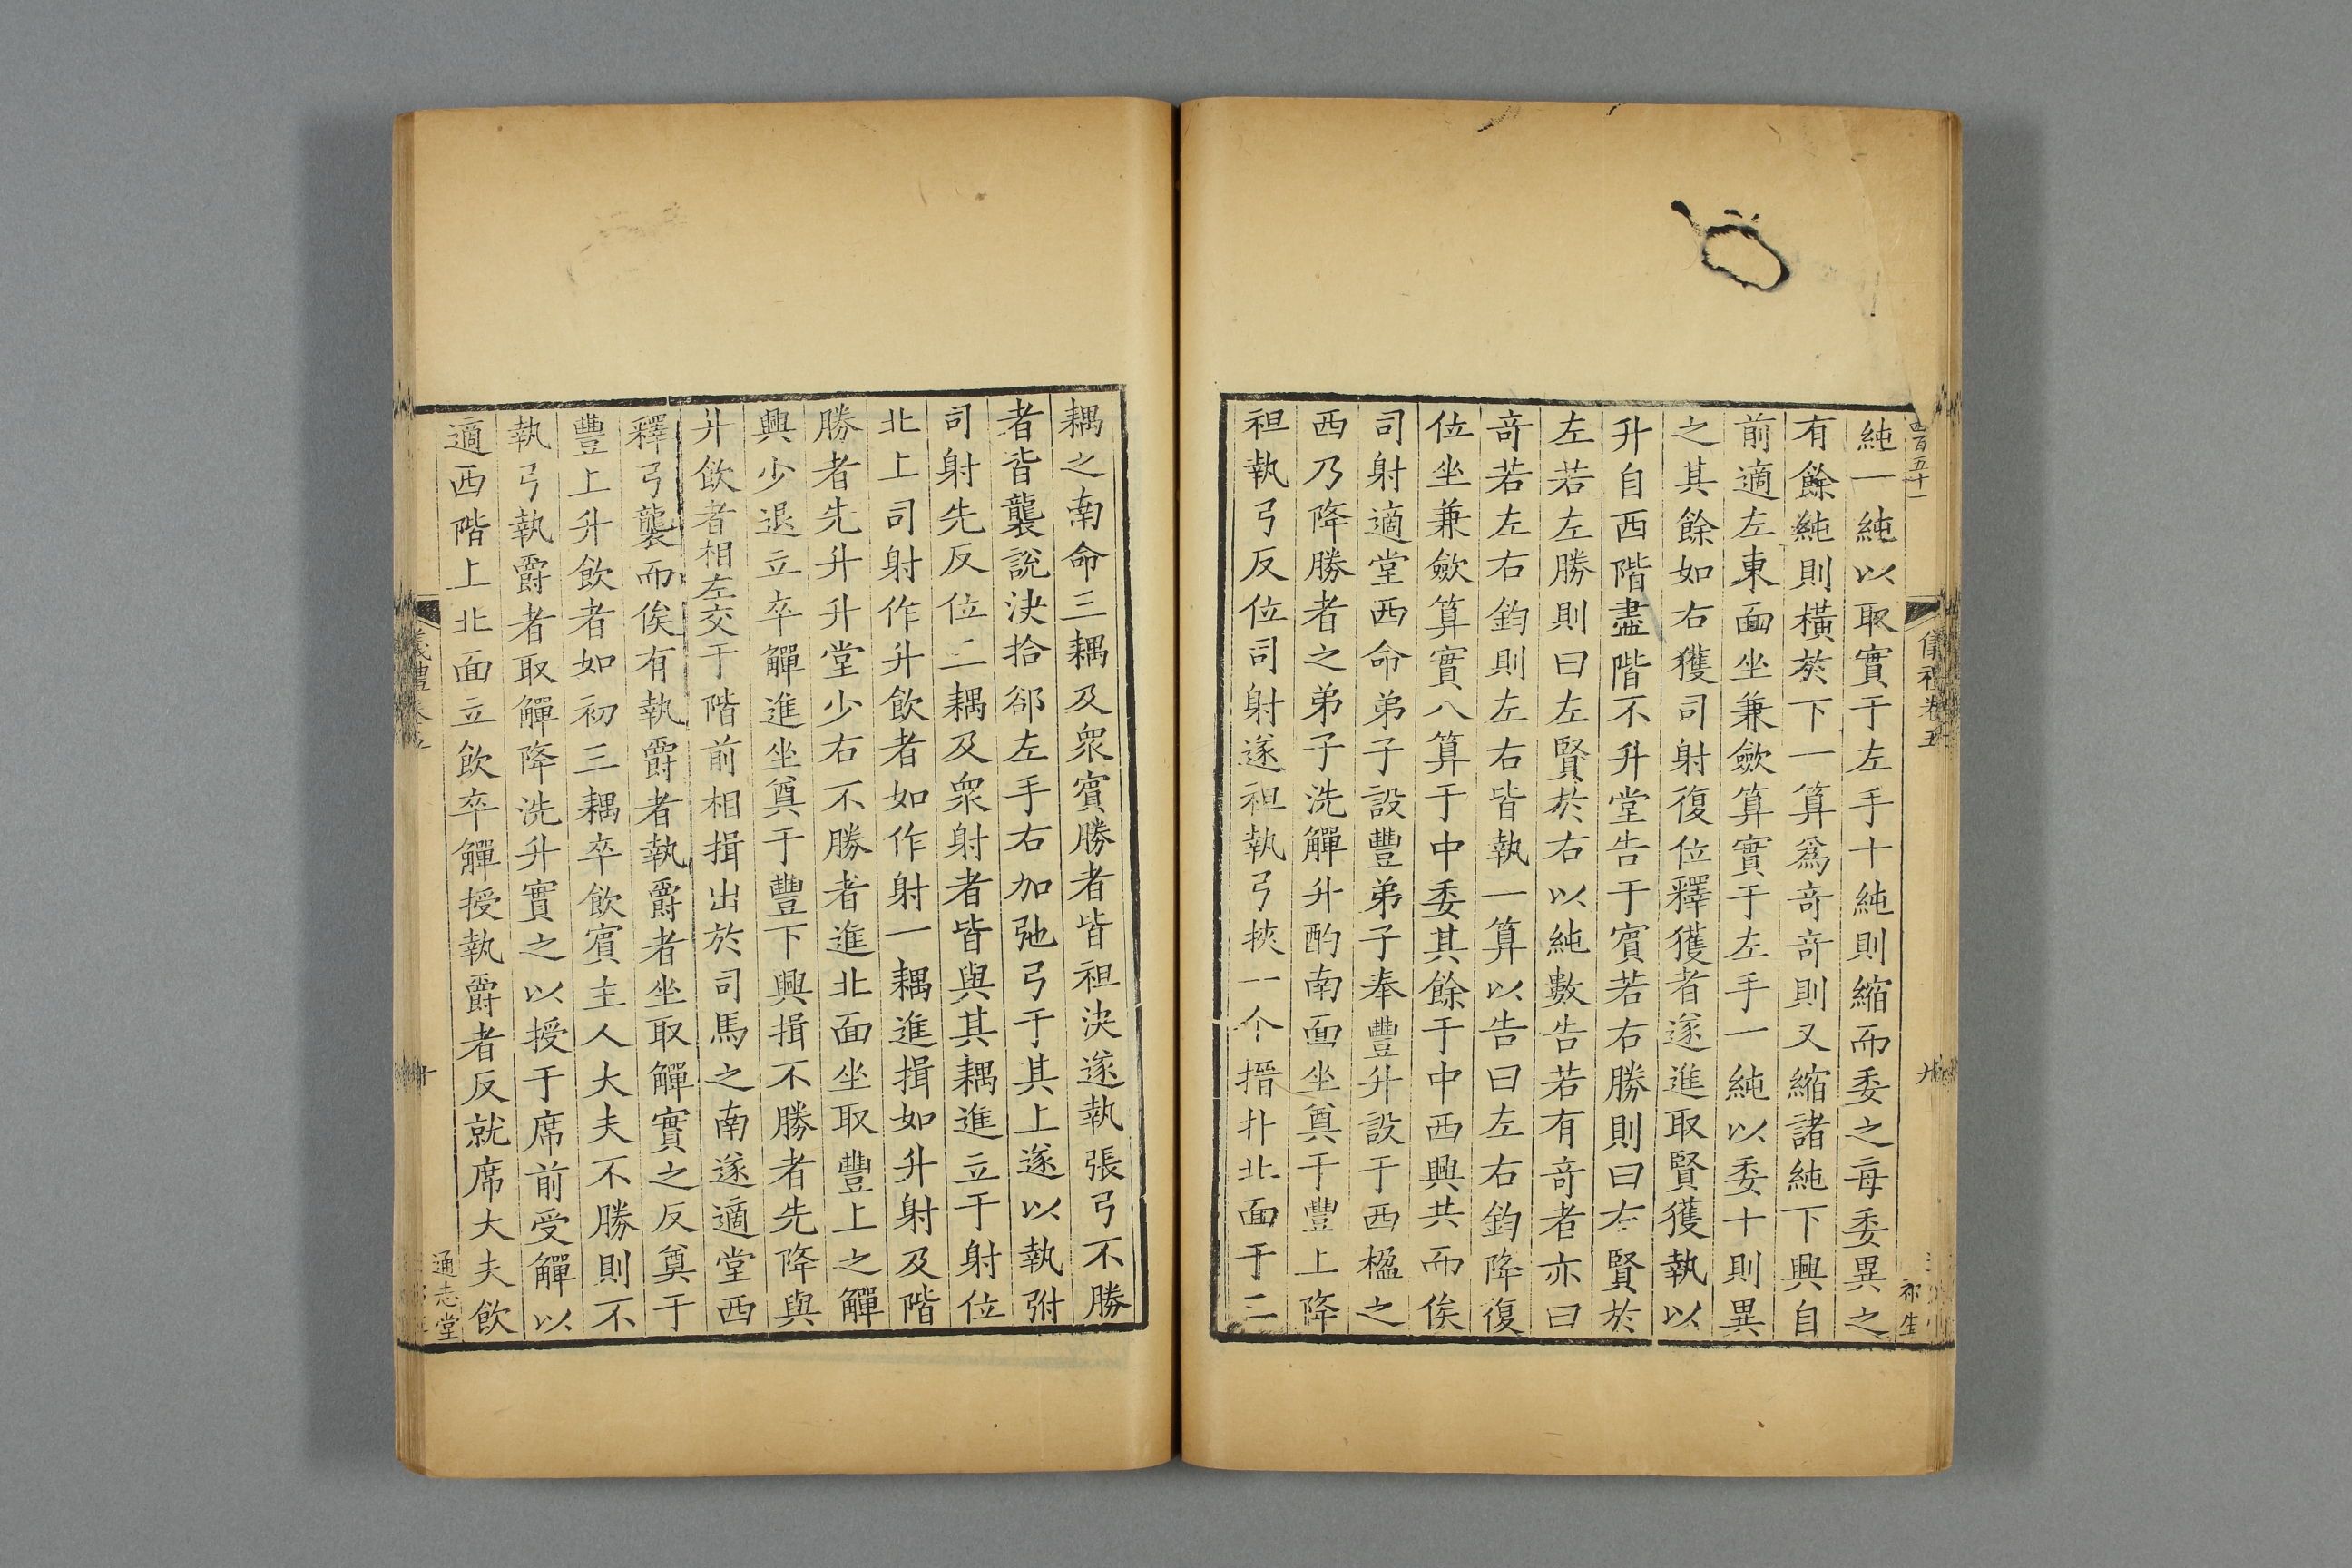 純一純以取實于左手十純則縮而委之每委異之
有餘純則橫於下一算爲竒竒則又縮諸純下興自
前適左東面坐兼斂算實于左手一純以委十則異
之其餘如右獲司射復位釋獲者遂進取賢獲執以
升自西階盡階不升堂告于賓若右勝則曰右賢於
左若左勝則曰左賢於右以純數告若有竒者亦曰
竒若左右鈞則左右皆執一算以告曰左右鈞降復
位坐兼斂算實八算于中委其餘于中西興共而俟
司射適堂西命弟子設豐弟子奉豐升設于西楹之
西乃降勝者之弟子洗觶升酌南面坐奠于豐上降
袒執弓反位司射遂袒執弓挾一个搢扑北面于三
儀禮卷五
九
祁生
耦之南命三耦及衆賓勝者皆袒決遂執張弓不勝
者皆襲說決拾郤左手右加弛弓于其上遂以執弣
司射先反位三耦及衆射者皆與其耦進立于射位
北上司射作升飲者如作射一耦進揖如升射及階
勝者先升升堂少右不勝者進北面坐取豐上之觶
興少退立卒觶進坐奠于豐下興揖不勝者先降與
升飲者相左交于階前相揖出於司馬之南遂適堂西
釋弓襲而俟有執爵者執爵者坐取觶實之反奠于
豐上升飲者如初三耦卒飲賓主人大夫不勝則不
執弓執爵者取觶降洗升實之以授于席前受觶以
適西階上北面立飲卒觶授執爵者反就席大夫飲
通志堂